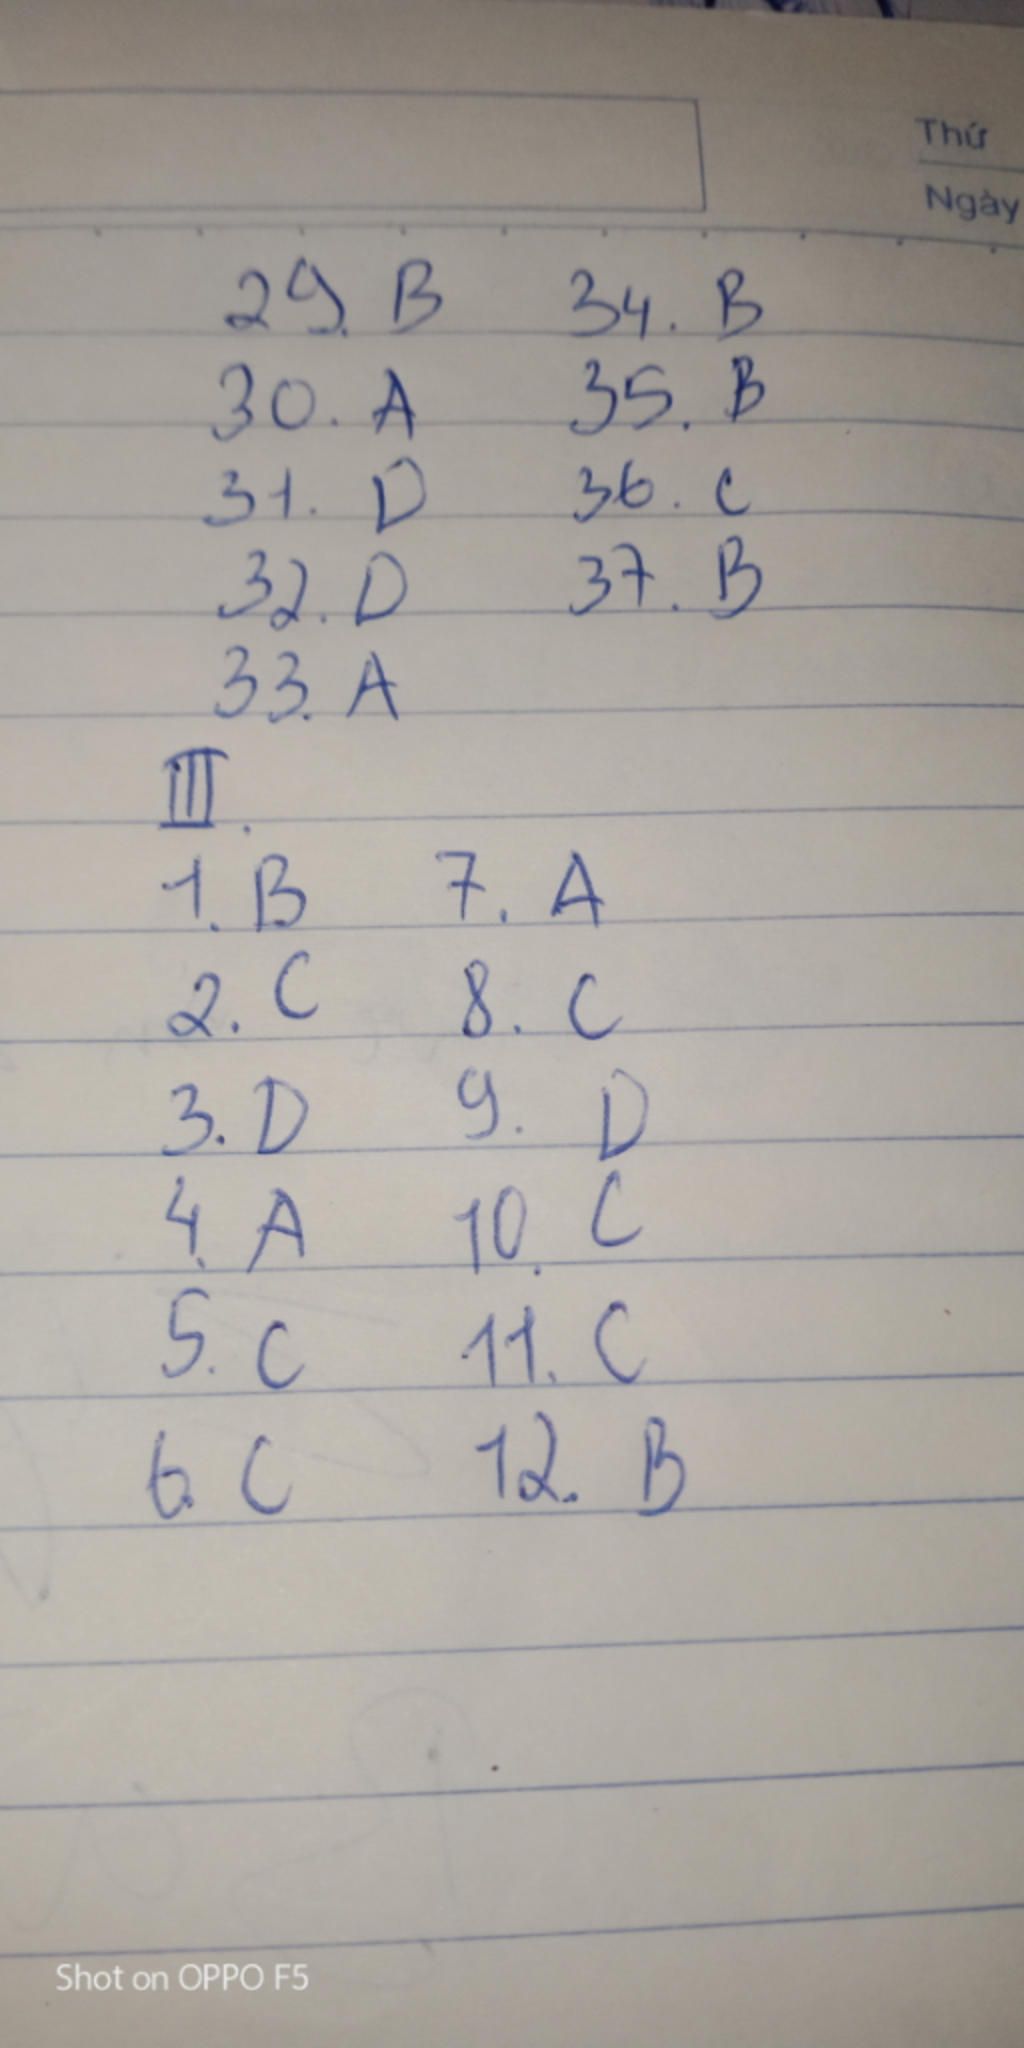 Thứ
Ngày
29. B 34. B
30. A 35. B
31. D 36. C
32. D 37. B
33. A
III.
1. B 7. A
2. C 8. C
3. D 9. D
4. A 10. C
5. C 11. C
6. C 12. B
Shot on OPPO F5